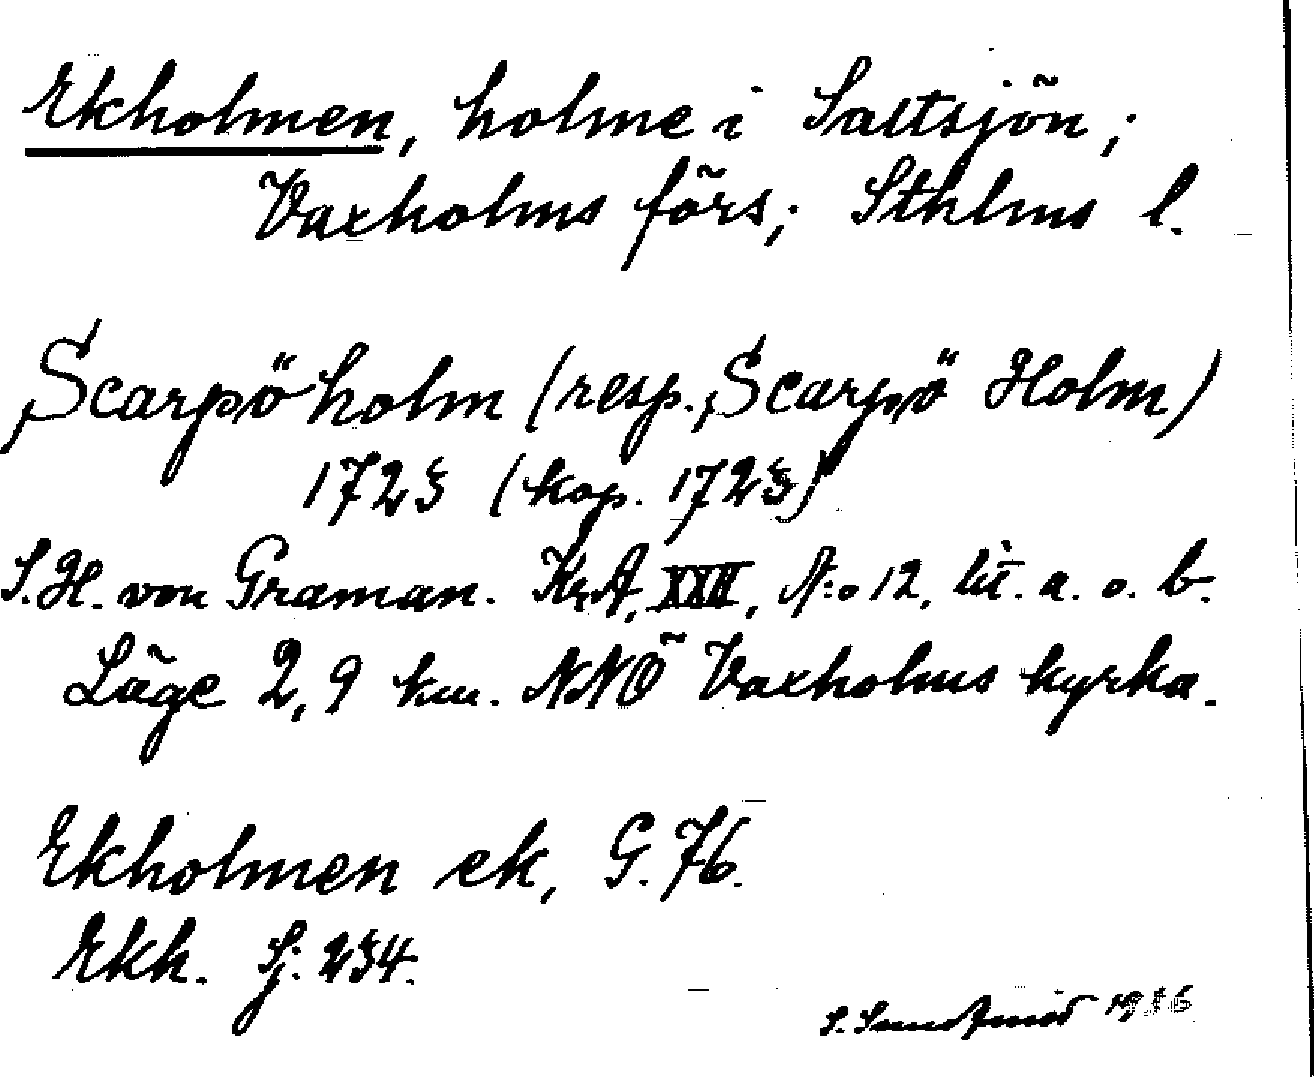 Ekholmen, holme i Saltsjön;
Vaxholms förs; Sthlms l.
,Scarpöholm (resp. ,Scarpö Holm)
1723 (kop. 1723)
S.H. von Graman. Kr.A, XXII, N:o 12, lit. a. o. b.
Läge 2,9 km. NNÖ Vaxholms kyrka.
Ekholmen ek, G. 76.
Ekh. Sj. 234.
S. 1936